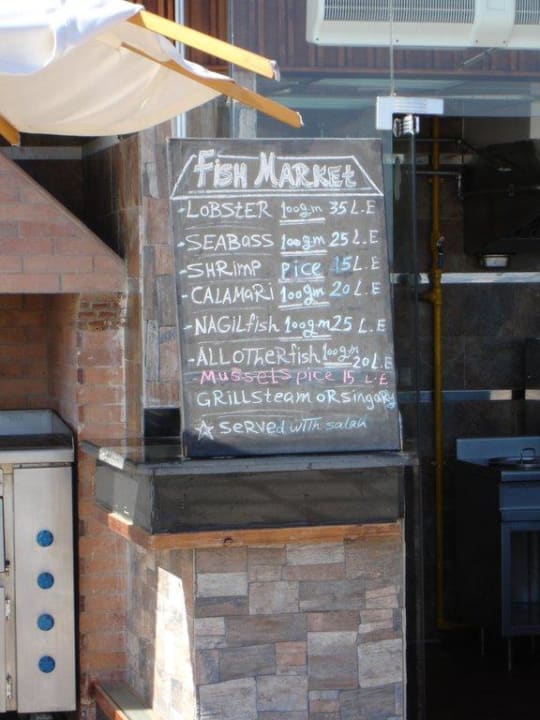 FISH MARKET
-LOBSTER 100gm 35 L.E
-SEABASS 100gm 25 L.E
-SHRimp pice 15 L.E
-CALAMARi 100gm 20 L.E
-NAGILfish 100gm 25 L.E
-ALL OTHeR fish 100gm 20 L.E
MusselS pice 15 L.E
GRILL Steam OR Singary
☆ SeRVed with salad